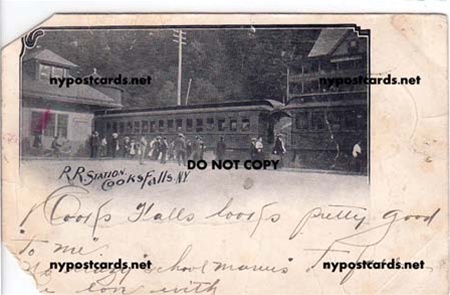 nypostcards.net nypostcards.net
DO NOT COPY
R.R. STATION. COOKS Falls. N.Y.
Cooks Falls looks pretty good
to me
nypostcards.net nypostcards.net
school
love with